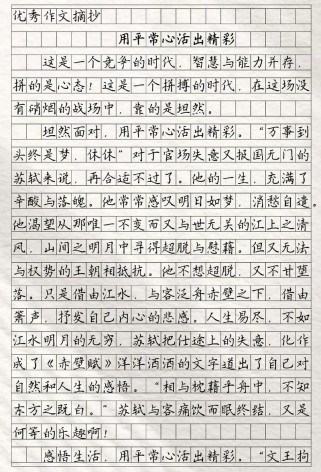 优秀作文摘抄
用平常心活出精彩
这是一个竞争的时代，智慧与能力并存，
拼的是心态！这是一个拼搏的时代，在这场没
有硝烟的战场中，靠的是坦然。
坦然面对，用平常心活出精彩。“万事到
头终是梦，休休”对于官场失意又报国无门的
苏轼来说，再合适不过了。他的一生，充满了
辛酸与落魄。他常常感叹明日如梦，消愁自遣。
他渴望从那唯一不变而又与世无关的江上之清
风，山间之明月中寻得超脱与慰藉。但又无法
与权势的王朝相抵抗。他不想超脱，又不甘堕
落。只是借由江水，与客泛舟赤壁之下，借由
箫声，抒发自己内心的悲感。人生易尽，不如
江水明月的无穷，苏轼把仕途上的失意，化作
成了《赤壁赋》洋洋洒洒的文字道出了自己对
自然和人生的感悟。“相与枕藉乎舟中，不知
东方之既白。”苏轼与客痛饮而眠终结，又是
何等的乐趣啊！
感悟生活，用平常心活出精彩。“文王拘